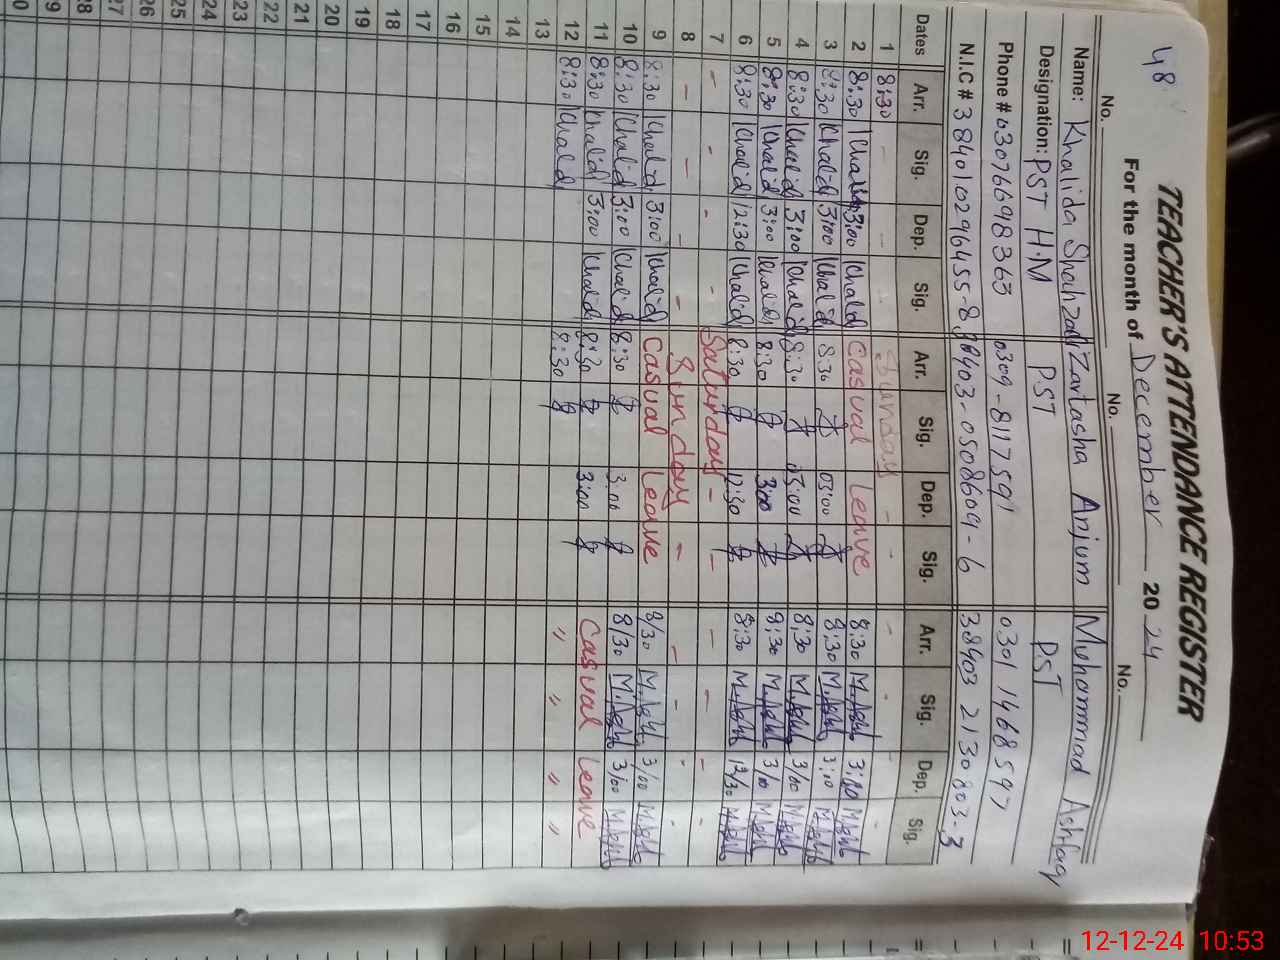 48
TEACHER'S ATTENDANCE REGISTER
For the month of December 2024
No. No. No.
Name: Khalida Shahzadi Zartasha Anjum Muhammad Ashfaq
Designation: PST H.M PST PST
Phone # 03076698363 0309-8117591 0301 1468597
N.I.C # 384010296455-8 38403-0508609-6 38403 2130803-3
Dates Arr. Sig. Dep. Sig. Arr. Sig. Dep. Sig. Arr. Sig. Dep. Sig.
1 8:30 - - Sunday - - - -
2 8:30 Khalid 3:00 Khalid Casual leave 8:30 M.Ashf 3:00 M.Ashf
3 8:30 Khalid 3:00 Khalid 8:30 03:00 8:30 M.Ashf 3:00 M.Ashf
4 8:30 Khalid 3:00 Khalid 8:30 03:00 8:30 M.Ashf 3/00 M.Ashf
5 8:30 Khalid 3:00 Khalid 8:30 3:00 8:30 M.Ashf 3/00 M.Ashf
6 8:30 Khalid 12:30 Khalid 8:30 12:30 8:30 M.Ashf 12/30 M.Ashf
7 - - - - Saturday - - - - - -
8 - - - - Sunday - - - - -
9 8:30 Khalid 3:00 Khalid Casual leave 8/30 M.Ashf 3/00 M.Ashf
10 8:30 Khalid 3:00 Khalid 8:30 3:00 8/30 M.Ashf 3/00 M.Ashf
11 8:30 Khalid 3:00 Khalid 8:30 3:00 Casual leave
12 8:30 Khalid 8:30 " " " "
13
14
15
16
17
18
19
20
21
22
23
24
25
26
27
28
29
30
12-12-24 10:53